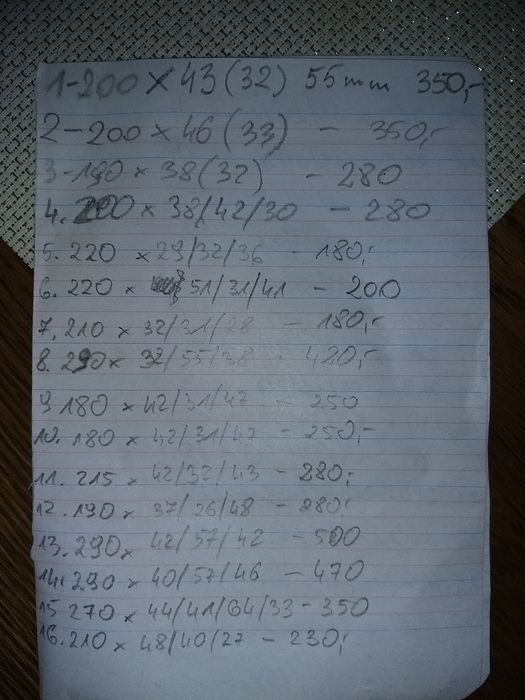 1-200 x 43(32) 55mm 350,-
2-200 x 46(33) - 350,-
3-190 x 38(32) - 280
4. 200 x 38/42/30 - 280
5. 220 x 29/32/36 - 180,-
6. 220 x 51/31/41 - 200
7. 210 x 32/31/28 - 180,-
8. 290 x 32/55/38 - 420,-
9 180 x 42/31/47 - 250
10. 180 x 42/31/47 - 250,-
11. 215 x 42/32/43 - 280,-
12. 190 x 37/26/48 - 280,-
13. 290 x 42/57/42 - 500
14. 290 x 40/57/46 - 470
15 270 x 44/41/64/33 - 350
16. 210 x 48/40/27 - 230,-